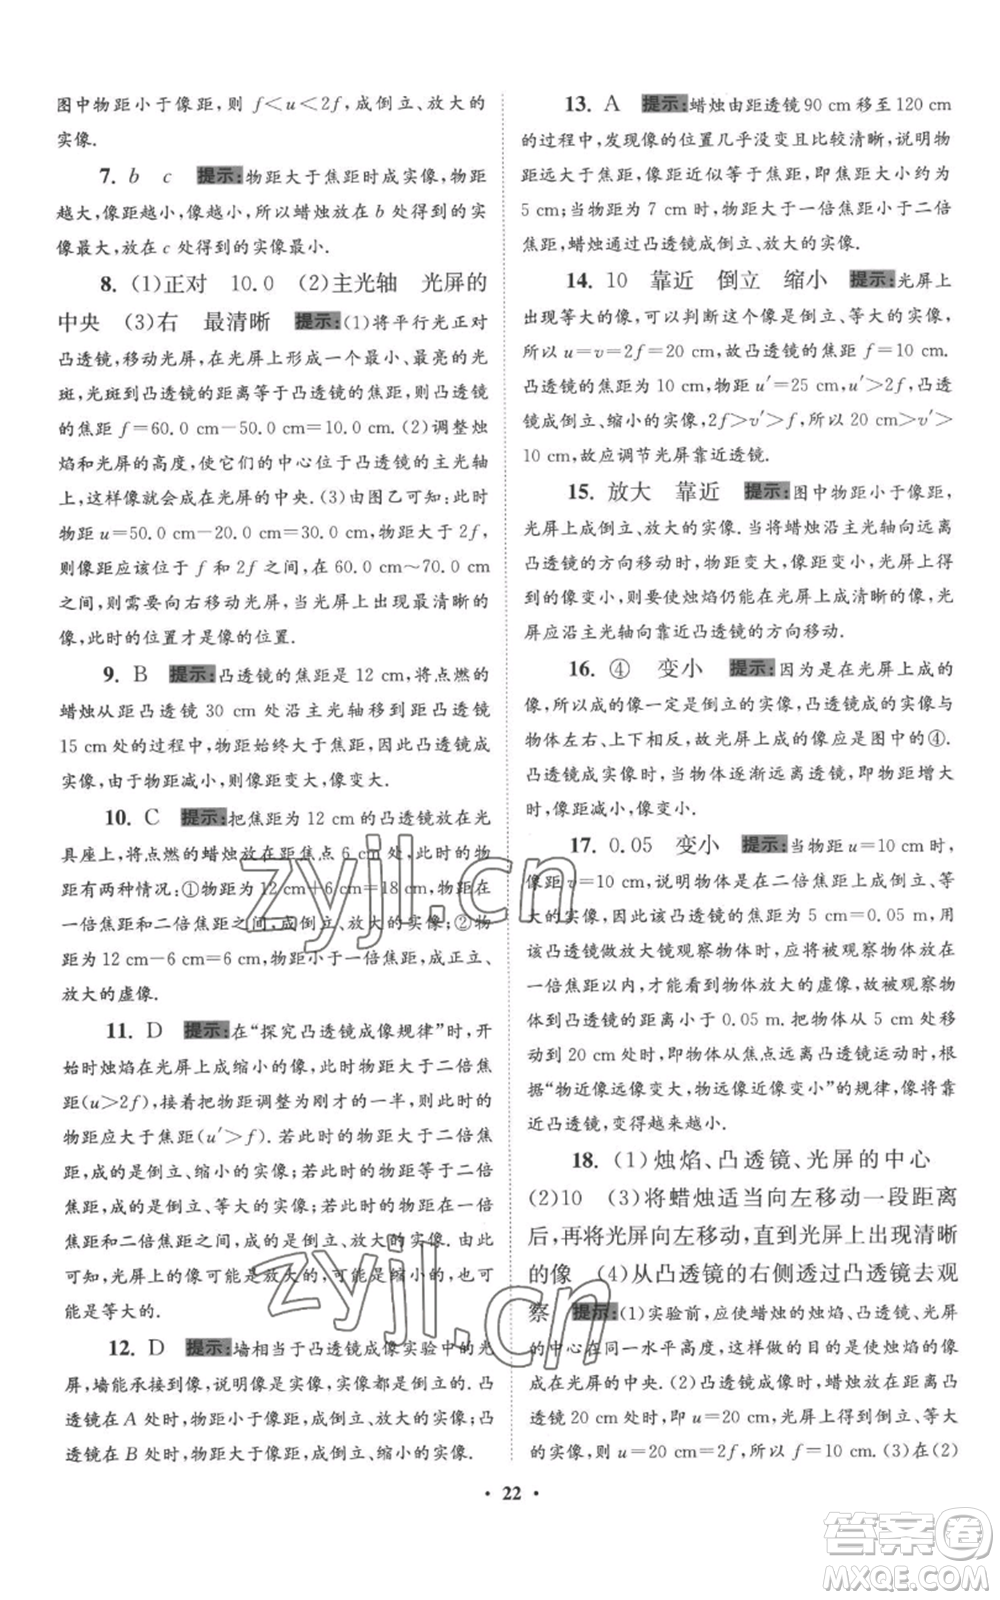 图中物距小于像距,则 f<u<2f,成倒立、放大的
实像.
7. b c 提示:物距大于焦距时成实像,物距
越大,像距越小,像越小,所以蜡烛放在 b 处得到的实
像最大,放在 c 处得到的实像最小.
8. (1)正对 10.0 (2)主光轴 光屏的
中央 (3)右 最清晰 提示:(1)将平行光正对
凸透镜,移动光屏,在光屏上形成一个最小、最亮的光
斑,光斑到凸透镜的距离等于凸透镜的焦距,则凸透镜
的焦距 f=60.0 cm-50.0 cm=10.0 cm.(2)调整烛
焰和光屏的高度,使它们的中心位于凸透镜的主光轴
上,这样像就会成在光屏的中央.(3)由图乙可知:此时
物距 u=50.0 cm-20.0 cm=30.0 cm,物距大于 2f,
则像距应该位于 f 和 2f 之间,在 60.0 cm~70.0 cm
之间,则需要向右移动光屏,当光屏上出现最清晰的
像,此时的位置才是像的位置.
9. B 提示:凸透镜的焦距是 12 cm,将点燃的
蜡烛从距凸透镜 30 cm 处沿主光轴移到距凸透镜
15 cm 处的过程中,物距始终大于焦距,因此凸透镜成
实像,由于物距减小,则像距变大,像变大.
10. C 提示:把焦距为 12 cm 的凸透镜放在光
具座上,将点燃的蜡烛放在距焦点 6 cm 处,此时物距
有两种情况:①物距为12 cm+6 cm=18 cm,物距在
一倍焦距和二倍焦距之间,成倒立、放大的实像;②物
距为 12 cm-6 cm=6 cm,物距在焦距以内,成正立、
放大的虚像.
11. D 提示:在“探究凸透镜成像规律”时,开
始时烛焰在光屏上成缩小的像,此时物距大于二倍焦
距(u>2f),接着把物距调整为刚才的一半,则此时的
物距应大于焦距(u′>f).若此时物距大于二倍焦距,
成的是倒立、缩小的实像;若此时物距等于二倍焦
距,成的是倒立、等大的实像;若此时物距在一倍焦距
和二倍焦距之间,成的是倒立、放大的实像.由此可
知,光屏上的像可能是放大的,可能是缩小的,可能是
等大的.
12. D 提示:墙相当于凸透镜成像实验中的光
屏,墙能承接到像,说明像是实像,实像都是倒立的.凸
透镜在 A 处时,物距小于像距,成倒立、放大的实像;凸
透镜在 B 处时,物距大于像距,成倒立、缩小的实像.
13. A 提示:蜡烛由距透镜 90 cm 移至 120 cm
的过程中,发现像的位置几乎没变且比较清晰,说明物
距远大于焦距,像距近似等于焦距,即焦距大约等于
5 cm;当物距为 7 cm 时,物距大于一倍焦距小于二倍
焦距,蜡烛通过凸透镜成倒立、放大的实像.
14. 10 靠近 倒立 缩小 提示:光屏上
出现等大的像,可以判断这个像是倒立、等大的实像,
所以 u=v=2f=20 cm,故凸透镜的焦距 f=10 cm.
凸透镜的焦距为 10 cm,物距 u′=25 cm,u′>2f,凸透
镜成倒立、缩小的实像,2f>v′>f,所以 20 cm>v′>
10 cm,故应调节光屏靠近透镜.
15. 放大 靠近 提示:图中物距小于像距,
光屏上成倒立、放大的实像.当将蜡烛沿主光轴向远离
凸透镜的方向移动时,物距变大,像距变小,光屏上得
到的像变小,则要使烛焰仍能在光屏上成清晰的像,光
屏应沿主光轴向靠近凸透镜的方向移动.
16. ④ 变小 提示:因为是在光屏上成的
像,所以成的像一定是倒立的实像,光屏上成的像与
物体左右、上下相反,故光屏上的像应是图中的④.
凸透镜成实像时,当物体逐渐远离透镜,即物距增大
时,像距减小,像变小.
17. 0.05 变小 提示:当物距 u=10 cm 时,
像距 v=10 cm,说明物体是在二倍焦距处成倒立、等
大的实像,因此该凸透镜的焦距为 5 cm=0.05 m,用
该凸透镜做放大镜观察物体时,应将被观察物体放在
焦距以内,成正立、放大的虚像,故被观察物
体到凸透镜的距离小于 0.05 m.把物体从 5 cm 处
移动到 20 cm 处时,即物体从焦点远离凸透镜运动,根
据“物近像远像变大,物远像近像变小”的规律,像将靠
近凸透镜,变得越来越小.
18. (1)烛焰、凸透镜、光屏的中心
(2)10 (3)将蜡烛适当向左移动一段距离
后,再将光屏向左移动,直到光屏上出现清晰
的像 (4)从凸透镜的右侧透过凸透镜去观
察 提示:(1)实验前,应使蜡烛的烛焰、凸透镜、光屏
的中心在同一水平高度,这样做的目的是使烛焰的像
成在光屏的中央.(2)凸透镜成像时,蜡烛放在距离凸
透镜 20 cm 时,即 u=20 cm,光屏上成倒立、等大
的实像,则 u=20 cm=2f,所以 f=10 cm.(3)在(2)
• 22 •
zyjl.cn
zyjl.cn
答案圈
MXQE.COM